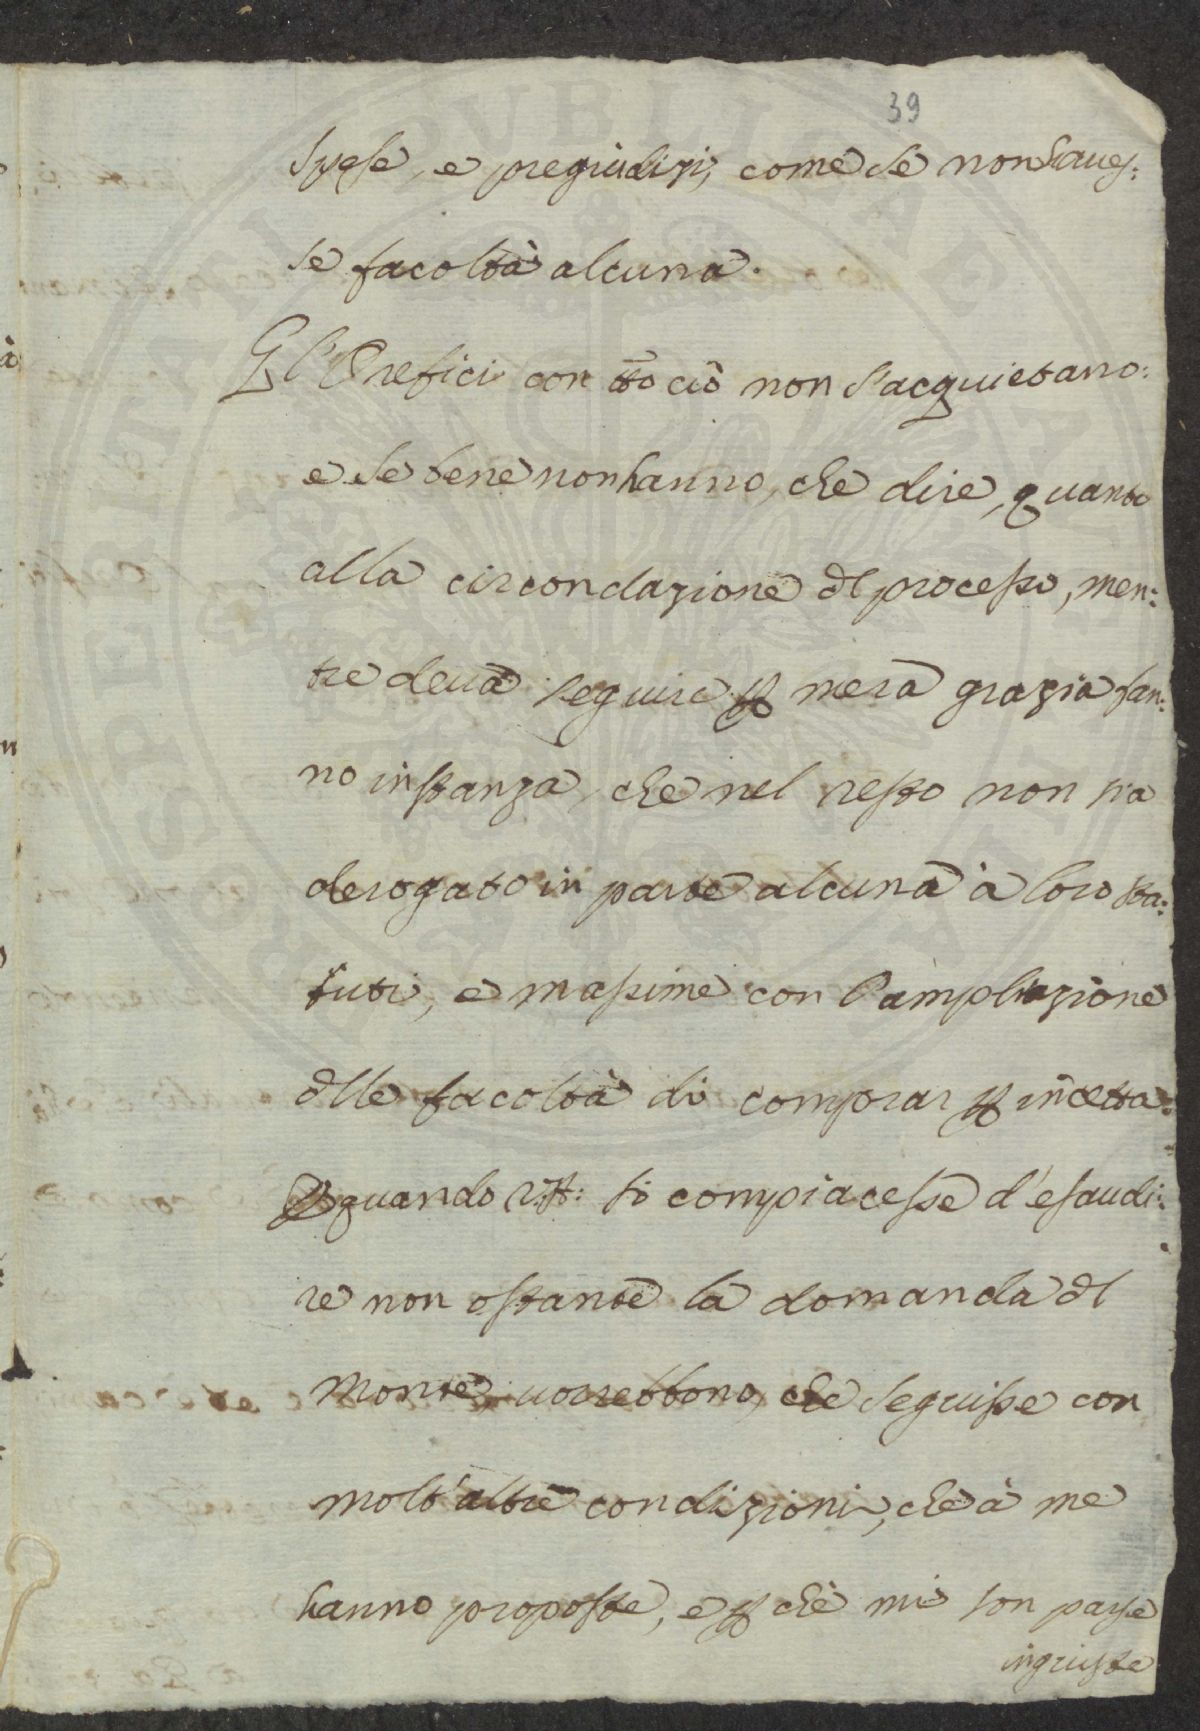 39
spese, e pregiudizi, come se non haues:
se facoltà alcuna.
Gl'Orefici con tto ciò non s'acquietano:
e se bene non hanno, che dire, quanto
alla circondazione dl processo, men:
tre deua seguire p mera grazia fan:
no instanza, che nel resto non sia
derogato in parte alcuna à loro sta:
tuti, e massime con l'ampliazione
dlle facoltà di comprar p incetta:
E quando V.A: si compiacesse d'esaudi:
re non ostante la domanda dl
Monte, uorrebbono, che seguisse con
molt'altre condizioni, che à me
hanno proposte, e p chè mi son parse
ingiuste